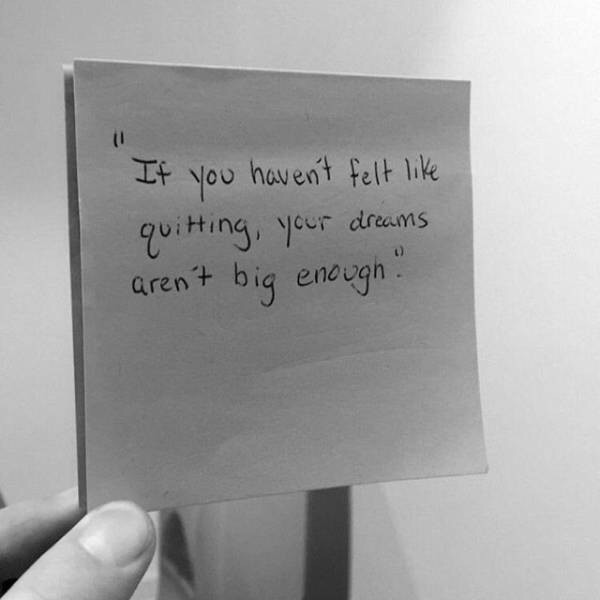 "If you haven't felt like
quitting, your dreams
aren't big enough."